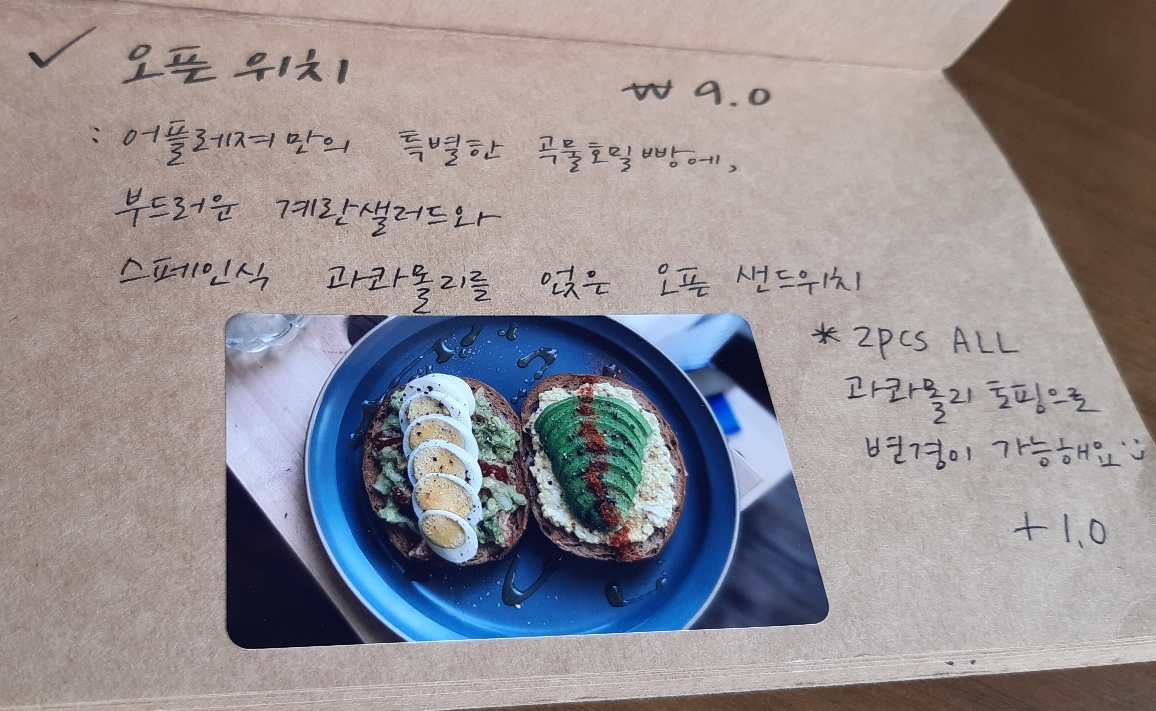 ✓ 오픈 위치
₩ 9.0
: 어플레져만의 특별한 곡물호밀빵에,
부드러운 계란샐러드와
스페인식 과콰몰리를 얹은 오픈 샌드위치
* 2pcs ALL
과콰몰리 토핑으로
변경이 가능해요 :)
+ 1.0